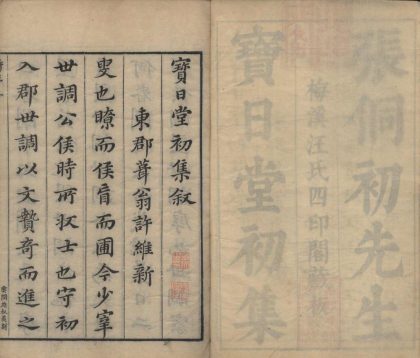 張侗初先生
梅溪汪氏四印閣藏板
寶日堂初集
寶日堂初集叙
東郡葺翁許維新
叟也瞭而侯盲而圃今少宰
世調公侯時所収士也守初
入郡世調以文贄奇而進之